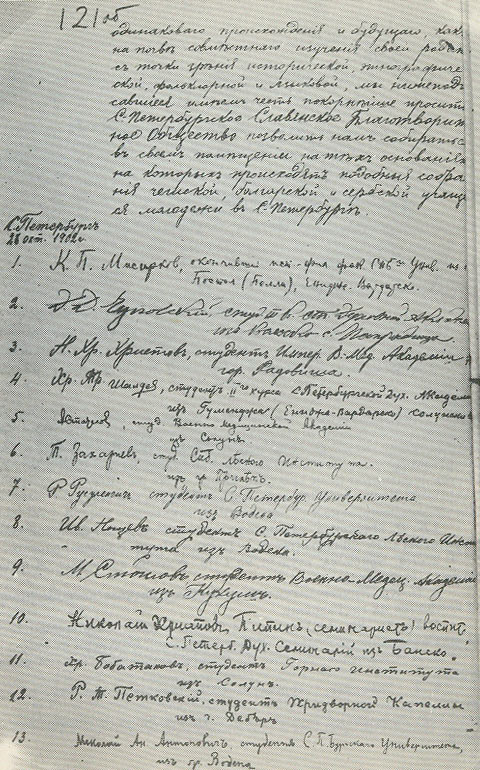 121 об
одинаковаго происхожденія и будущаго, какъ
на почвѣ совмѣстнаго изученія своей родины
съ точки зрѣнія исторической, этнографиче-
ской, фольклорной и языковой, мы нижепод
савшіеся имѣемъ честь покорнѣйше просить
С-Петербургское Славянское Благотворит
ное Общество позволить намъ собираться
въ своемъ помѣщеніи на тѣхъ основаніяхъ
на которыхъ происходятъ подобныя собра
нія чешской, болгарской и сербской учаще
ся молодежи въ С-Петербургѣ.
С. Петербургъ
28 окт. 1902 г.
1. К. П. Мисирковъ, окончившій ист-фил фак. СПБ Унив. из
Постол (Пелла), Енидже-Вардарско.
2. Д. Д. Чуповскій студ
изъ села Папрадища
3. Н. Хр. Христовъ, студентъ Импер. В-Мед. Академіи
гор. Радовиша.
4. Хр. Тр Шалдев, студентъ II курса С Петербургской Дух. Академіи
изъ Гуменджа (Енидже-Вардарско) солунско
5. студ. Военно-медицинской Академіи
изъ Солунъ.
6. Т. Захаріев, студ. Спб. Лѣсного Института.
изъ г.
7. Р Русулевичъ студентъ С. Петербур. Университета
изъ Водена
8. Ив. студентъ С. Петербургскаго Лѣсного Инст
тута изъ Водена.
9. М. Стоиловъ студентъ Военно-Медиц. Академіи
изъ Кукушъ.
10. Николай Христовъ, семинаристъ, воспит.
С. Петерб. Дух. Семинаріи изъ Банско.
11. Хр. студентъ Горнаго института
изъ Солунъ.
12. Р. Т. Петковскій, студентъ Придворной Капеллы
изъ г. Дебъръ
13. Николай Ан. студентъ С. П. Бургскаго Университета,
изъ гр. Водена